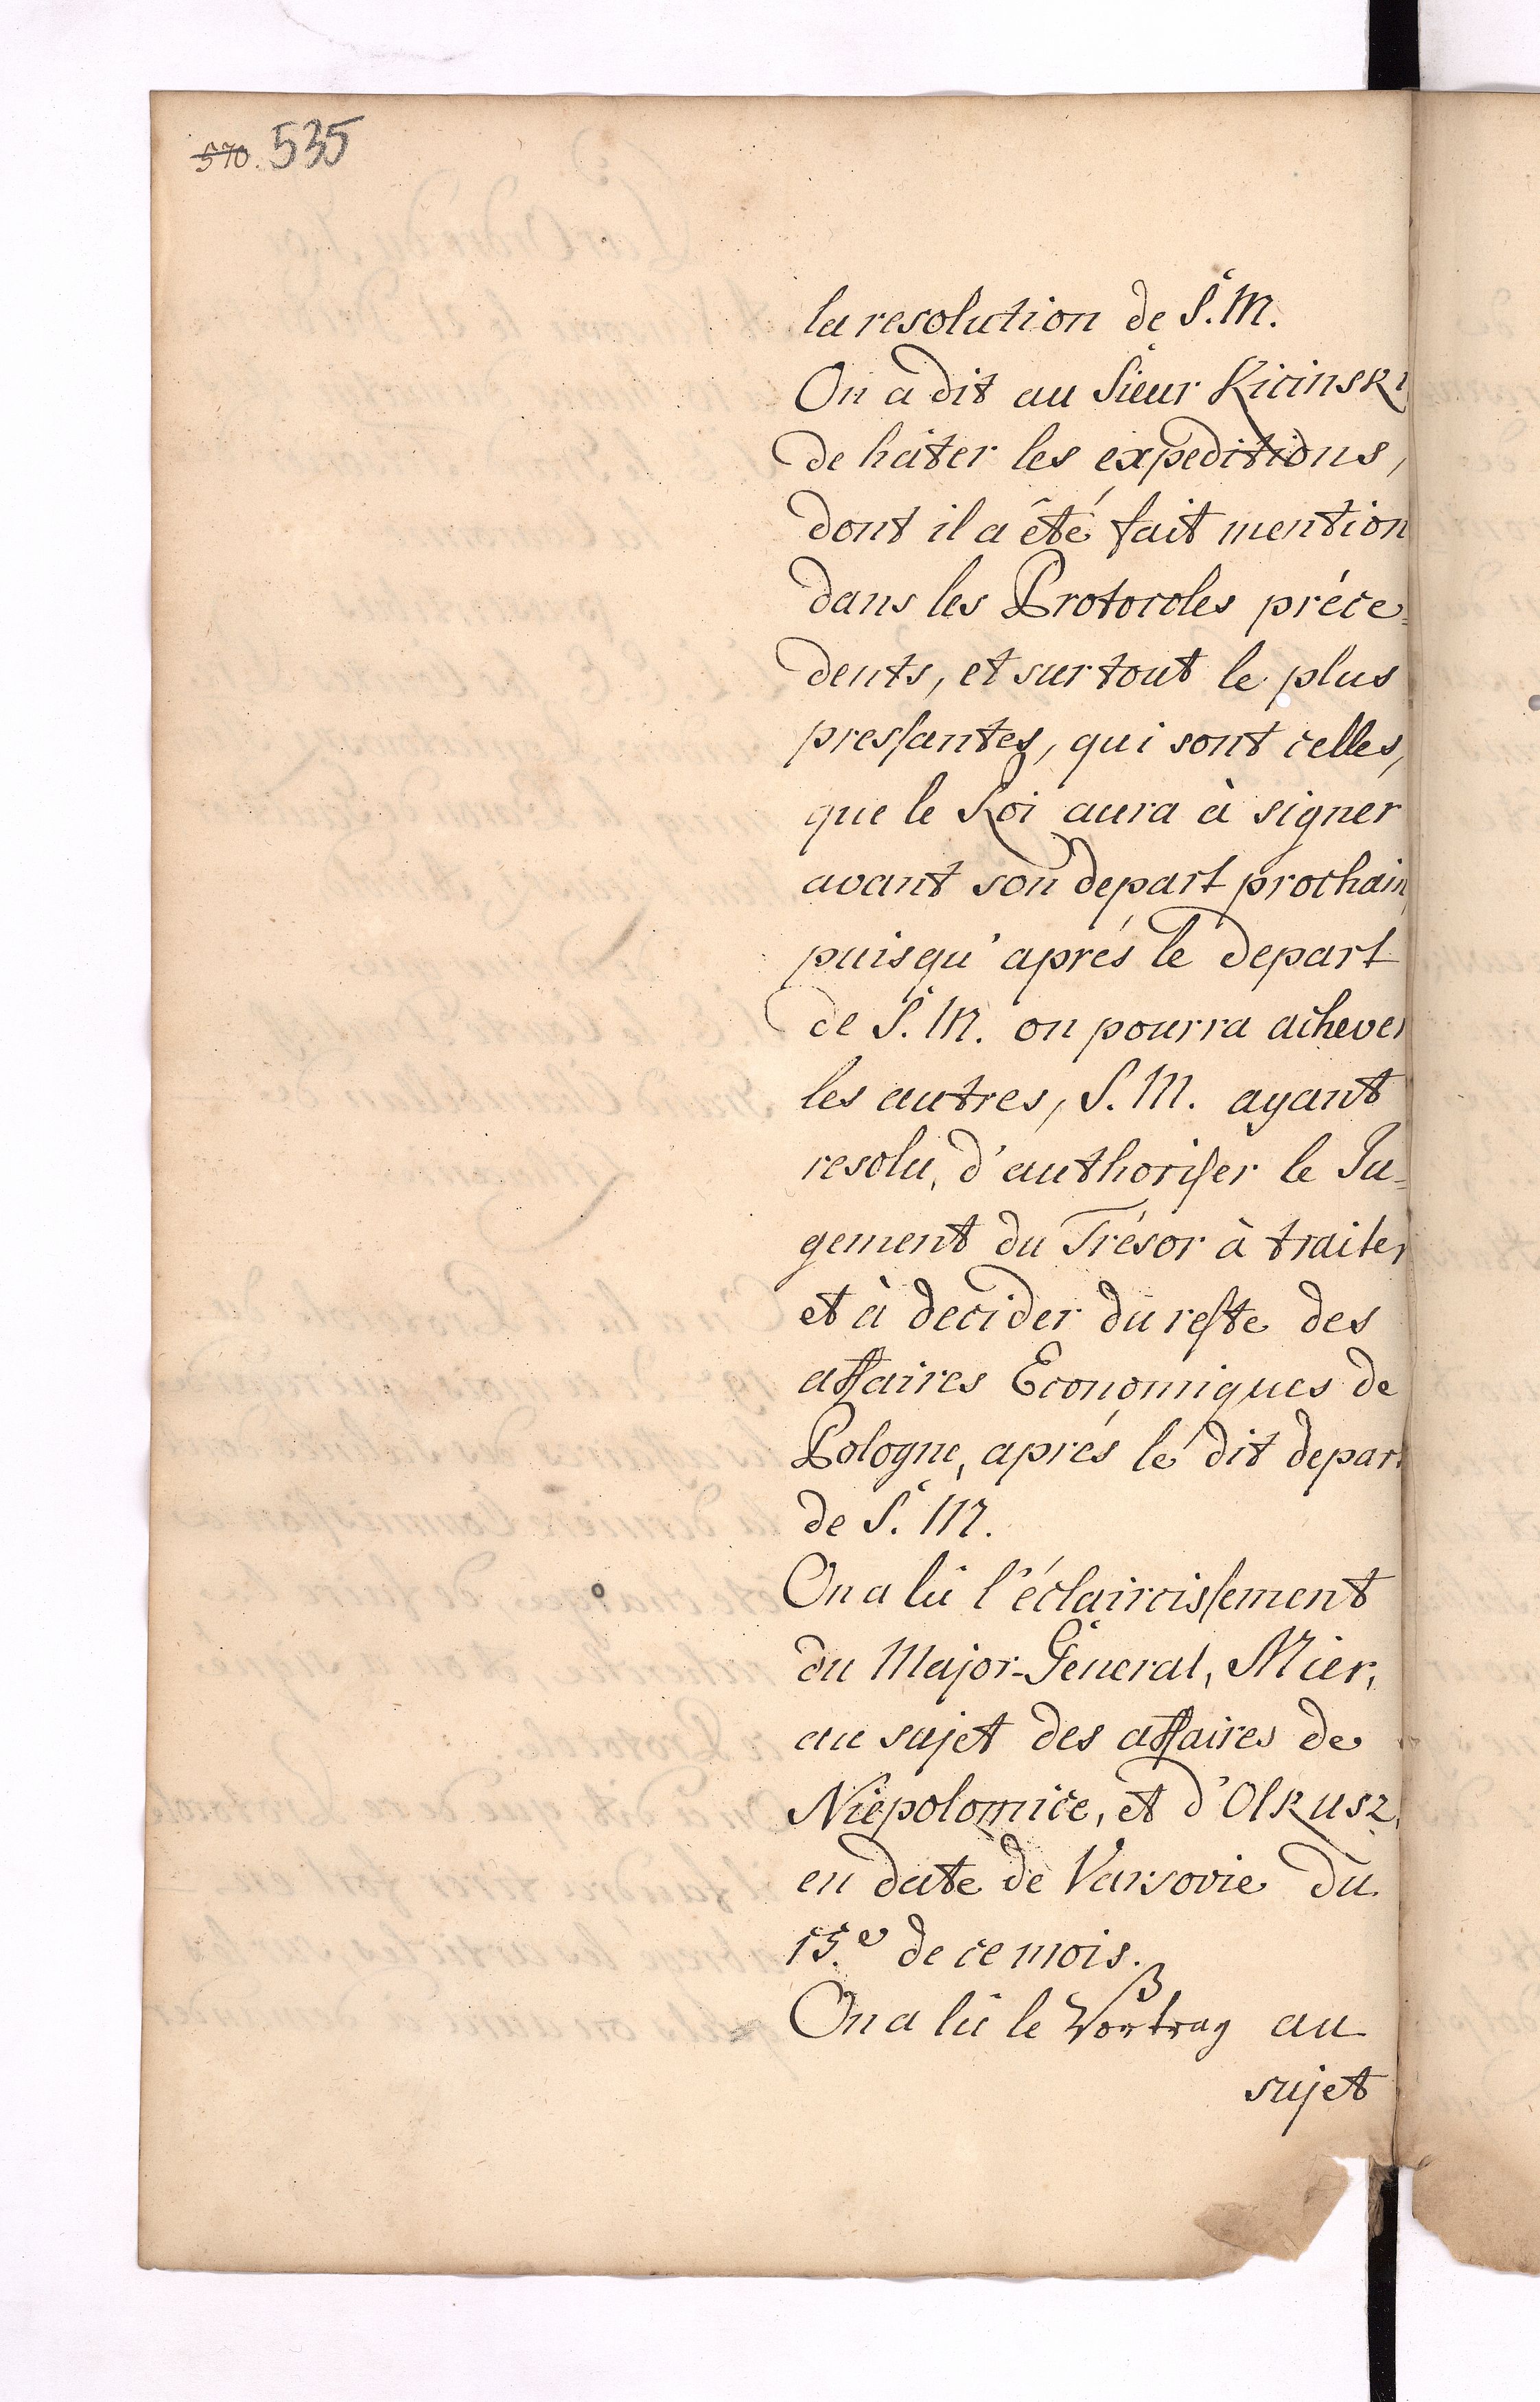 570. 535
la resolution de S. M.
On a dit au Sieur Kicinski
de hâter les expeditions,
dont il a été fait mention
dans les Protocoles préce=
dents, et surtout le plus
pressantes, qui sont celles,
que le Roi aura à signer
avant son depart prochain,
puisqu'aprés le depart
de S. M. on pourra achever
les autres, S. M. ayant
resolu, d'authoriser le Ju=
gement du Trésor à traiter
et à decider du reste des
affaires Economiques de
Pologne, aprés le dit depart
de S. M.
On a lû l'éclaircissement
du Major-Géneral, Mier,
au sujet des affaires de
Niepolomice, et d'Olkusz,
en date de Varsovie du
15.e de ce mois.
On a lû le Vortrag au
sujet